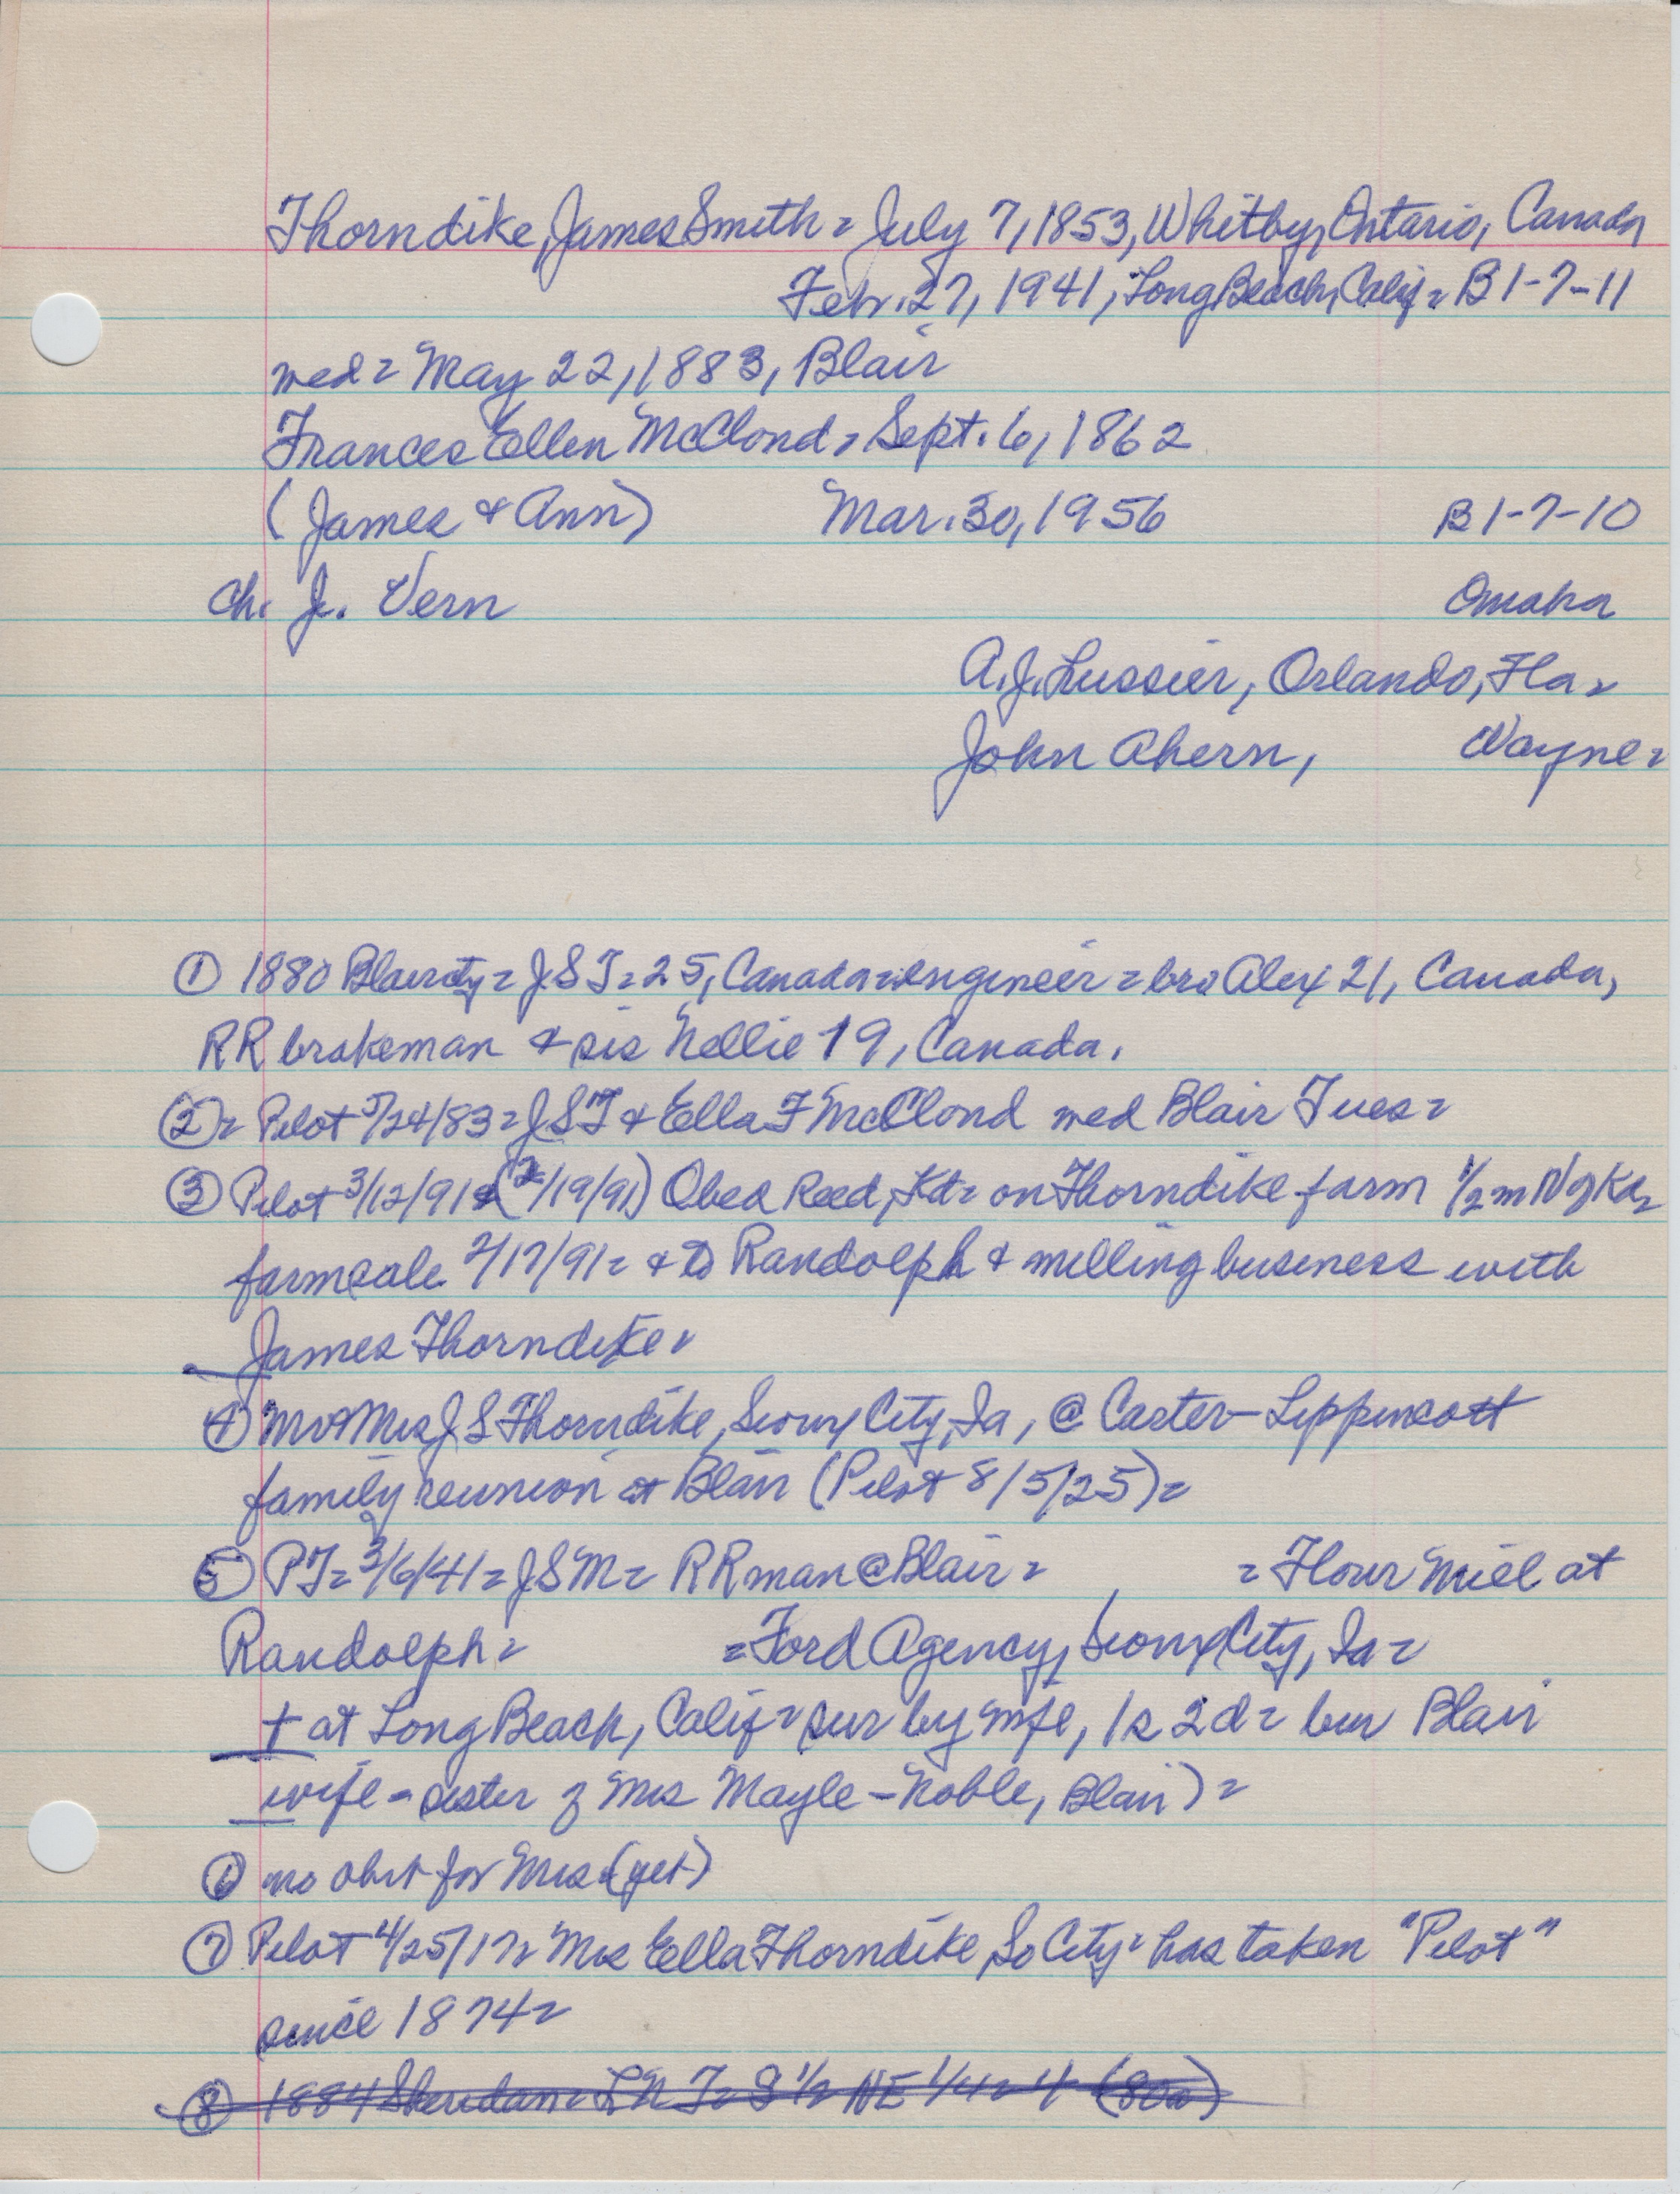 Thorndike, James Smith = July 7, 1853, Whitby, Ontario, Canada
Feb. 27, 1941, Long Beach, Calif = B1-7-11
wed = May 22, 1883, Blair
Frances Ellen McClond = Sept. 6, 1862
(James & Ann) Mar. 30, 1956 B1-7-10
ch. J. Vern Omaha
A.J. Lussier, Orlando, Fla =
John Ahern, Wayne =
① 1880 Blair city = J S T = 25, Canada = engineer = bro Alex 21, Canada,
RR brakeman & sis Nellie 19, Canada.
② = Pilot 5/24/83 = J S T & Ella F McClond wed Blair Tues =
③ Pilot 3/12/91 & (2/19/91) Obed Reed, Kd = on Thorndike farm 1/2 m N of Kd =
farm sale 2/17/91 = & to Randolph & milling business with
James Thorndike =
④ Mr & Mrs J S Thorndike, Sioux City, Ia, @ Carter-Lippincott
family reunion at Blair (Pilot 8/5/25) =
⑤ PT = 3/6/41 = J S M = RR man @ Blair = = Flour Mill at
Randolph = = Ford Agency, Sioux City, Ia =
† at Long Beach, Calif = sur by wife, 1s 2d = bur Blair
wife - sister of Mrs Mayle-Noble, Blair) =
⑥ no obit for Mrs (yet)
⑦ Pilot 4/25/17 = Mrs Ella Thorndike, So City = has taken "Pilot"
since 1874 =
⑧ 1884 Sheridan = L N T = S 1/2 NE 1/4 = 4 (80a)